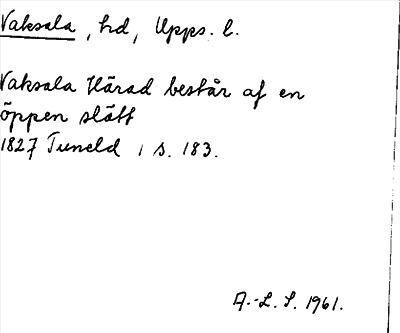 Vaksala, hd, Upps. l.
Vaksala Härad består af en
öppen slätt
1827 Tuneld 1 s. 183.
A.-L. S. 1961.